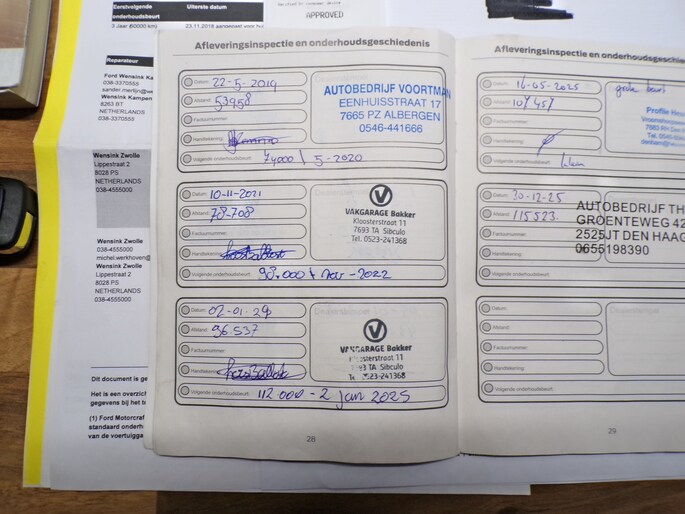 Eerstvolgende
onderhoudsbeurt
Uiterste datum
23.11.2018
APPROVED
Reparateur
Ford Wensink Kam
038-3370555
sander.merlijn@we
Wensink Kampen
8263 BT
NETHERLANDS
038-3370555
Wensink Zwolle
Lippestraat 2
8028 PS
NETHERLANDS
038-4555000
Wensink Zwolle
038-4555000
michel.werkhoven@
Wensink Zwolle
Lippestraat 2
8028 PS
NETHERLANDS
038-4555000
Dit document is ge
Het is een overzich
gegevens bij het te
(1) Ford Motorcraf
standaard onderh
van de voertuigga
Afleveringsinspectie en onderhoudsgeschiedenis
Datum: 22-5-2019
Afstand: 53958
Factuurnummer:
Handtekening:
Volgende onderhoudsbeurt: 74000 \ 5-2020
AUTOBEDRIJF VOORTMAN
EENHUISSTRAAT 17
7665 PZ ALBERGEN
0546-441666
Datum: 10-11-2021
Afstand: 78-708
Factuurnummer:
Handtekening:
Volgende onderhoudsbeurt: 98.000 \ nov-2022
VAKGARAGE Bakker
Kloosterstraat 11
7693 TA Sibculo
Tel. 0523-241368
Datum: 02-01-24
Afstand: 96537
Factuurnummer:
Handtekening:
Volgende onderhoudsbeurt: 112 000 - 2 jan 2025
VAKGARAGE Bakker
Kloosterstraat 11
7693 TA Sibculo
Tel. 0523-241368
28
Afleveringsinspectie en onderhoudsgeschied
Datum: 16-05-2025
Afstand: 107457
Factuurnummer:
Handtekening:
Volgende onderhoudsbeurt: klein
grote beurt
Profile
Datum: 30-12-25
Afstand: 115523
Factuurnummer:
Handtekening:
Volgende onderhoudsbeurt:
AUTOBEDRIJF TH
GROENTEWEG 42
2525JT DEN HAAG
0656198390
Datum:
Afstand:
Factuurnummer:
Handtekening:
Volgende onderhoudsbeurt:
Dealerstempel
29